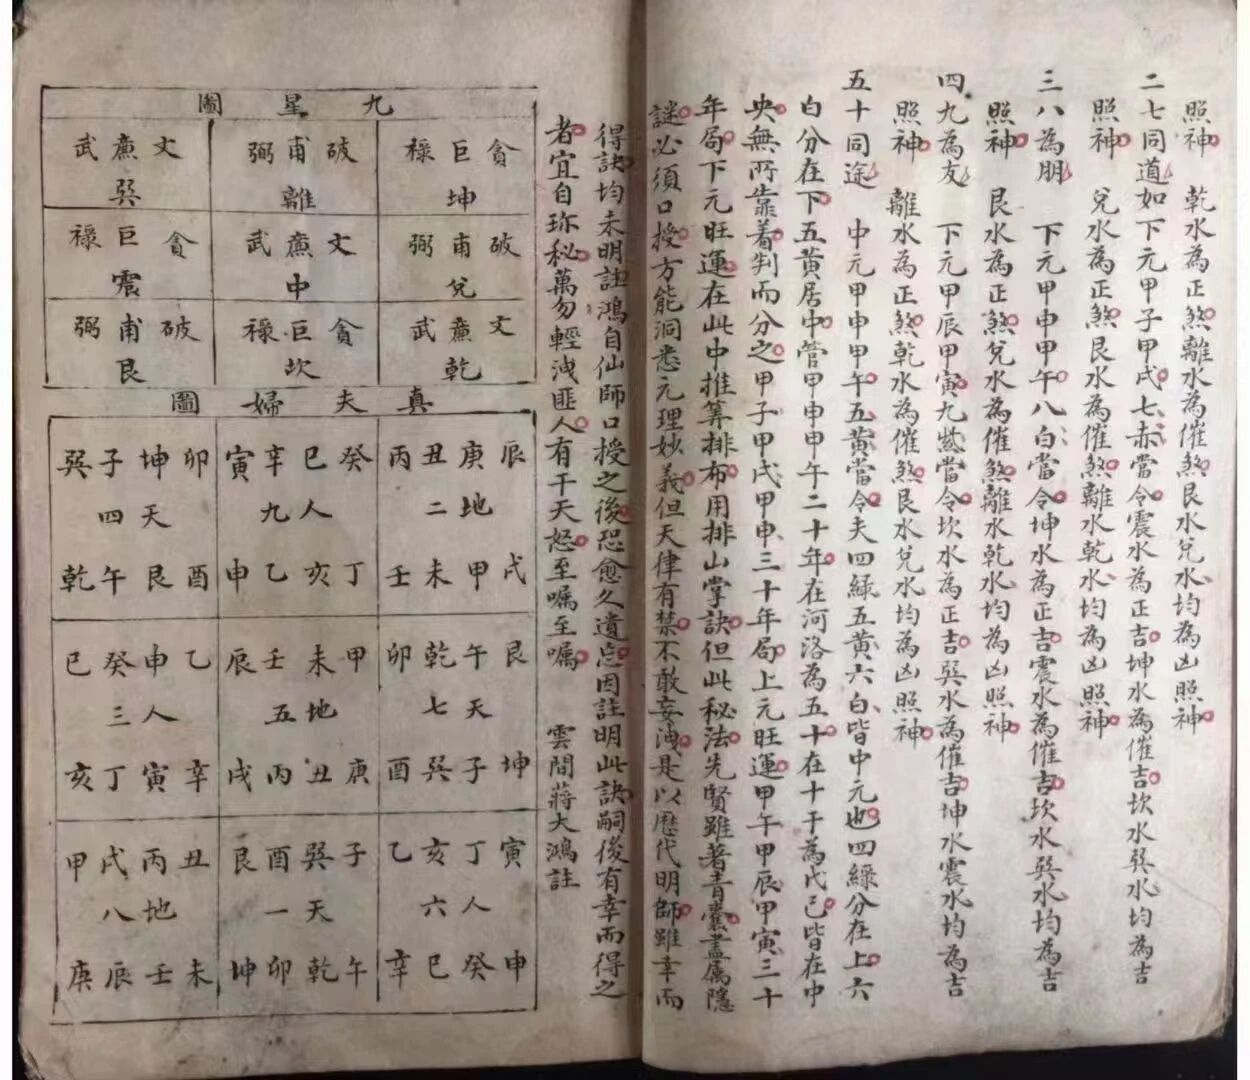 照神　乾水為正煞離水為催煞艮水兌水均為凶照神
二七同道如下元甲子甲戌七赤當令震水為正吉坤水為催吉坎水巽水均為吉
照神　兌水為正煞艮水為催煞離水乾水均為凶照神
三八為朋　下元甲申甲午八白當令坤水為正吉震水為催吉坎水巽水均為吉
照神　艮水為正煞兌水為催煞離水乾水均為凶照神
四九為友　下元甲辰甲寅九紫當令坎水為正吉巽水為催吉坤水震水均為吉
照神　離水為正煞乾水為催煞艮水兌水均為凶照神
五十同途　中元甲申甲午五黃當令夫四綠五黃六白皆中元也四綠分在上六
白分在下五黃居中管甲申甲午二十年在河洛為五十在十干為戊己皆在中
央無所靠着判而分之甲子甲戌甲申三十年局上元旺運甲午甲辰甲寅三十
年局下元旺運在此中推算排布用排山掌訣但此秘法先賢雖著青囊盡屬隱
謎必須口授方能洞悉元理妙義但天律有禁不敢妄洩是以歷代明師雖幸而
得訣均未明註鴻自仙師口授之後恐愈久遺忘因註明此訣嗣後有幸而得之
者宜自珎秘萬勿輕洩匪人有干天怒至囑至囑　雲間蔣大鴻註
九星圖
貪巨祿　破甫弼　文廉武
坤　離　巽
破甫弼　文廉武　貪巨祿
兌　中　震
文廉武　貪巨祿　破甫弼
乾　坎　艮
真夫婦圖
辰庚丑丙　癸巳辛寅　卯坤子巽
地二　人九　天四
戌甲未壬　丁亥乙申　酉艮午乾
艮午乾卯　甲未壬辰　乙申癸巳
天七　地五　人三
坤子巽酉　庚丑丙戌　辛寅丁亥
寅丁亥乙　子巽酉艮　丑丙戌甲
人六　天一　地八
申癸巳辛　午乾卯坤　未壬辰庚